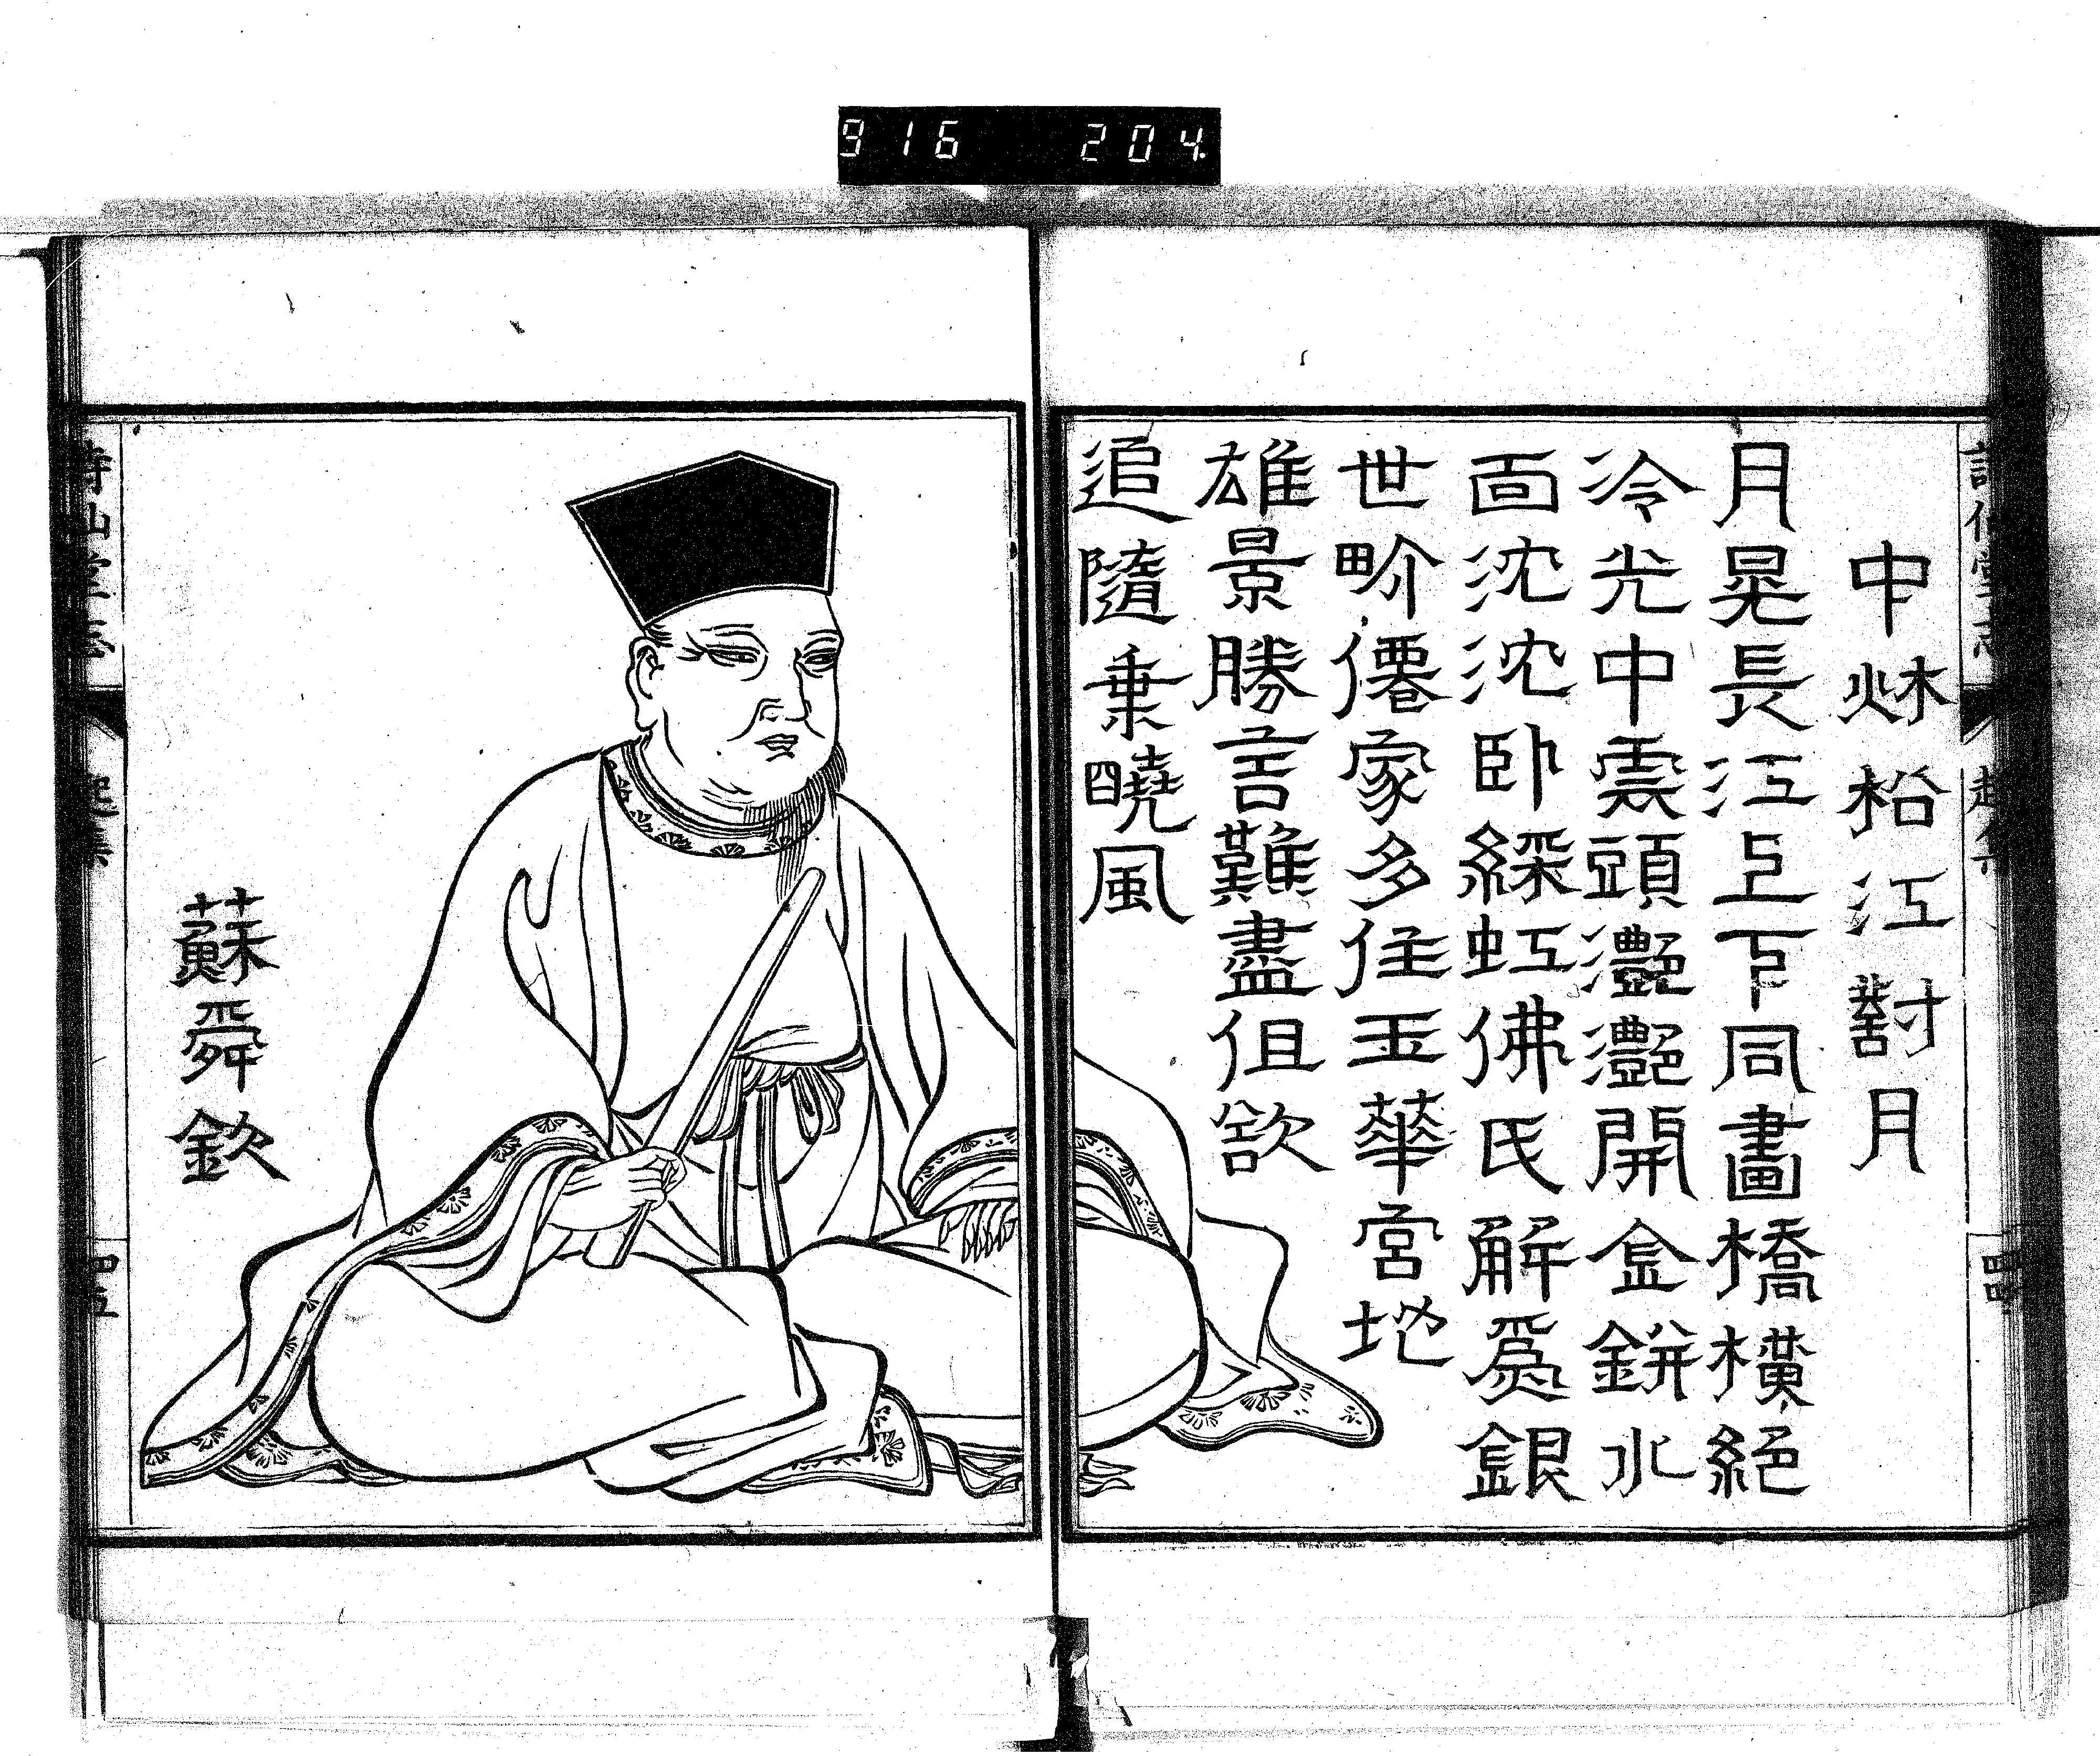 916 204
中秌松江對月
月晃長江上下同畵橋橫絕
冷光中雲頭灩灩開金餅水
面沈沈卧綵虹佛氏解爲銀
世界僊家多住玉華宮地
雄景勝言難盡但欲
追隨乗曉風
四四
蘇舜欽
四五